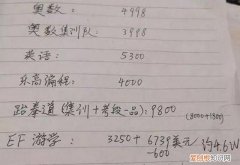 奥数: 4998
奥数集训队: 3998
英语: 5300
乐高编程: 4000
跆拳道(集训+考级一品): 9800
(8000+1800)
EF 游学: 3250+6739美元 约4.6W
-600